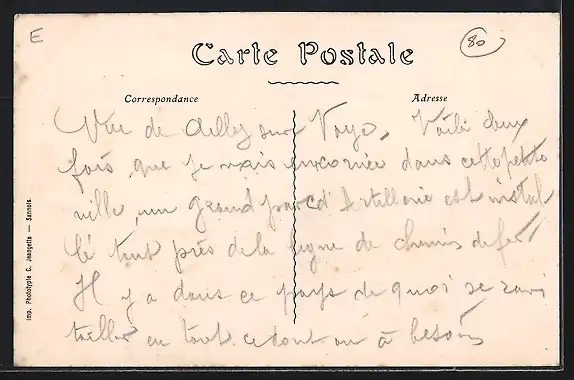 E
80
Carte Postale
Correspondance
Adresse
Vue de Ailly sur Noye, Voilà deux
fois que je vais en corvée dans cette petite
ville, un grand parc d'Artillerie est instal
lé tout près de la ligne de chemin de fer
Il y a dans ce pays de quoi se ravi
tailler en tout ce dont on à besoin
Imp. Phototypie C. Jeangette — Sannois.